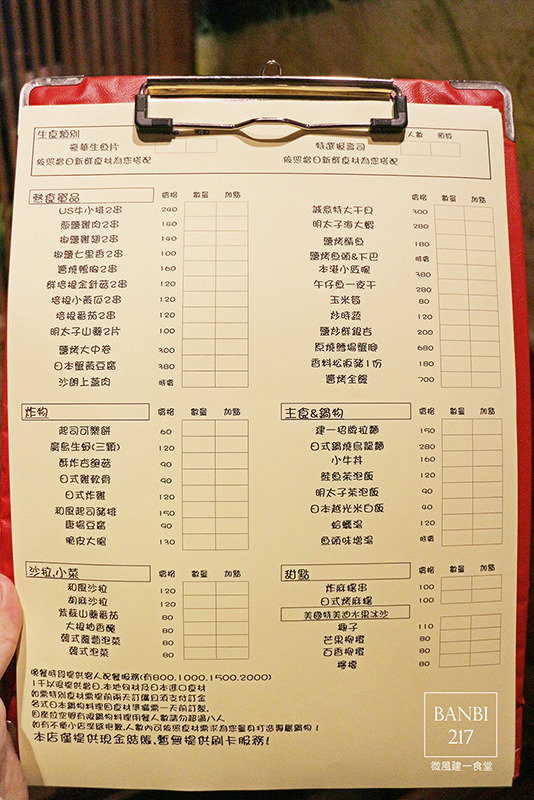 生食類別 人數 預算
豪華生魚片 特選握壽司
依照當日新鮮食材為您搭配 依照當日新鮮食材為您搭配
熱食單品 價格 數量 加點
US牛小排2串 240
蔥鹽雞肉2串 140
椒鹽雞翅2串 140
椒鹽七里香2串 100
醬燒鴨胸2串 160
鮮培根金針菇2串 120
培根小黃瓜2串 120
培根番茄2串 120
明太子山藥2片 100
鹽烤大中卷 300
日本蟹黃豆腐 380
沙朗上蓋肉 時價
價格 數量 加點
誠意特大干貝 300
明太子海大蝦 280
鹽烤鯖魚 180
鹽烤魚頭&下巴 時價
本港小 380
午仔魚一夜干 280
玉米筍 80
炒時蔬 120
鹽炒鮮銀杏 200
原燒鱈場蟹腳 680
香料松阪豬1份 180
醬烤全鰻 700
炸物 價格 數量 加點
起司可樂餅 60
廣島生蚵(三顆) 120
酥炸杏鮑菇 90
日式雞軟骨 90
日式炸雞 120
和風起司豬排 150
唐揚豆腐 90
脆皮大腸 130
主食&鍋物 價格 數量 加點
建一招牌拉麵 150
日式鍋燒烏龍麵 280
小牛丼 160
鮭魚茶泡飯 120
明太子茶泡飯 90
日本越光米白飯 40
蛤蠣湯 120
魚頭味增湯 時價
沙拉,小菜 價格 數量 加點
和風沙拉 120
胡麻沙拉 120
紫蘇山藥番茄 80
大根柚香醃 80
韓式蘿蔔泡菜 80
韓式泡菜 80
甜點 價格 數量 加點
炸麻糬串 100
日式烤麻糬 100
美國特美池水果冰沙
椰子 110
芒果柳橙 80
百香柳橙 80
檸檬 80
晚餐時段提供客人配餐服務(有800.1000.1500.2000)
1千以提供當日本地食材及日本進口食材
如需特別食材需提前兩天訂購且須支付訂金
各式日本鍋物料理因食材準備需一天前訂製。
因座位空間有限鍋物料理用餐人數請勿超過八人
本店僅提供現金結帳,暫無提供刷卡服務!
BANBI
217
微風建一食堂